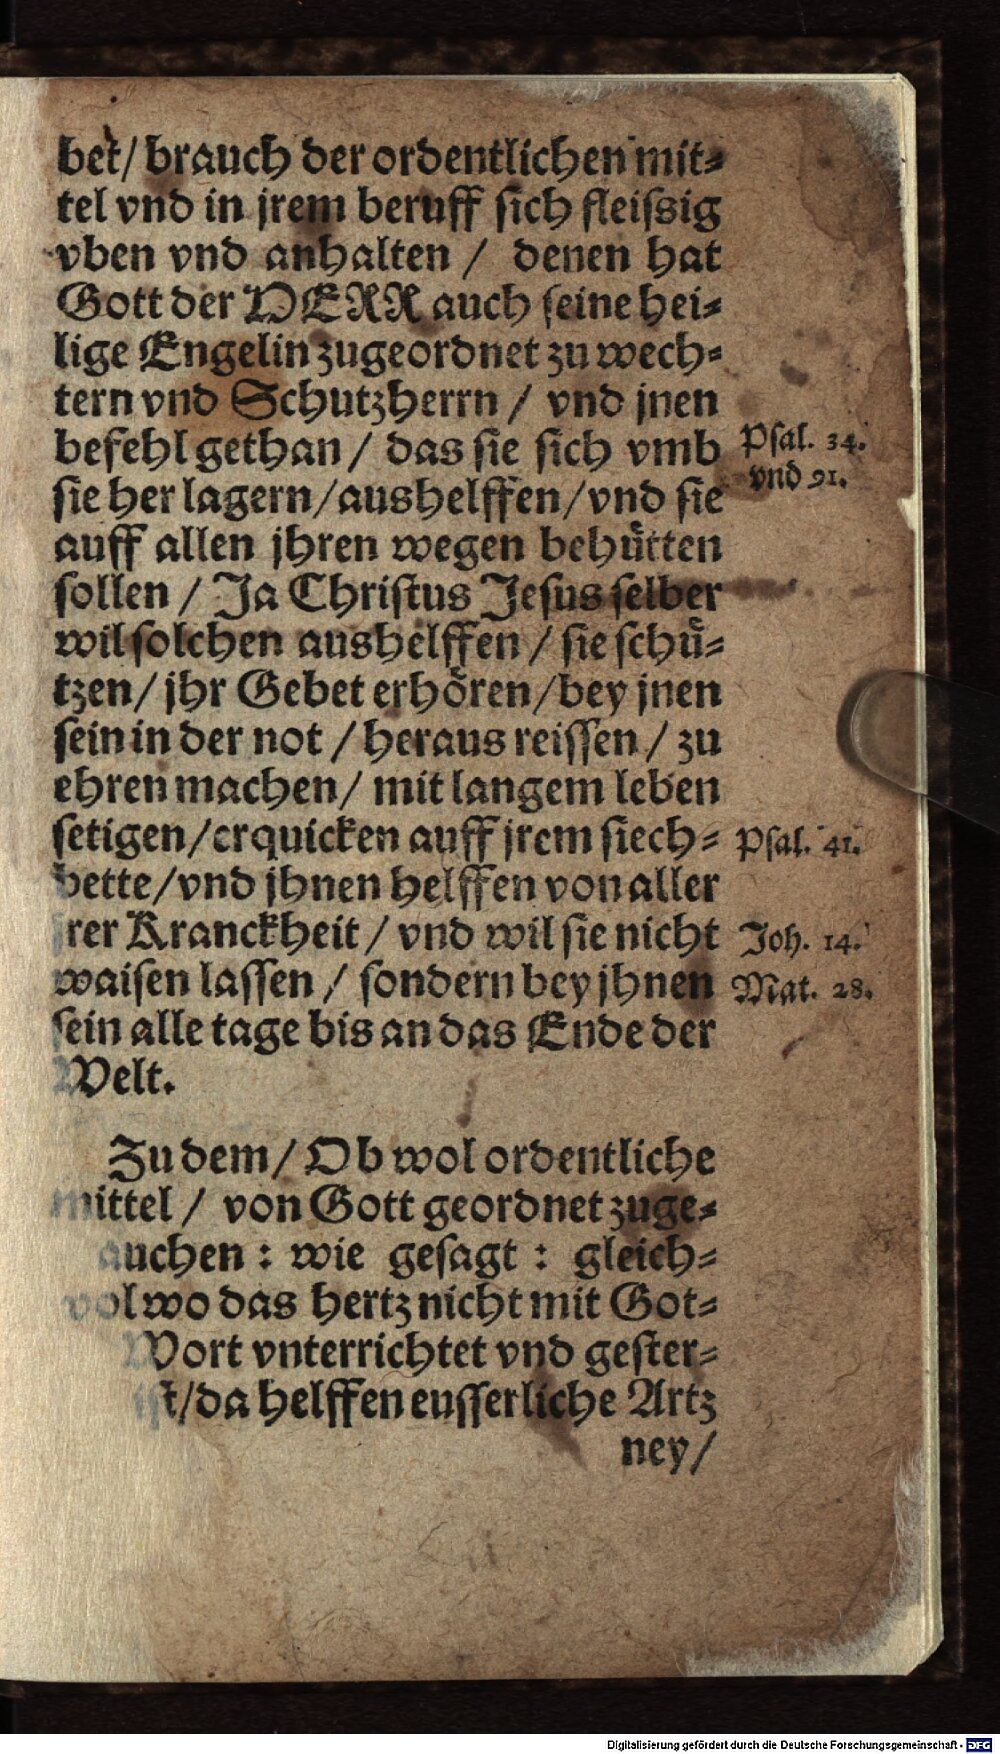 bet/ brauch der ordentlichen mit⸗
tel vnd in jrem beruff sich fleissig
vben vnd anhalten / denen hat
Gott der HERR auch seine hei⸗
lige Engelin zugeordnet zu wech⸗
tern vnd Schutzherrn / vnd jnen
befehl gethan / das sie sich vmb
sie her lagern/aushelffen/vnd sie
auff allen jhren wegen behuͤtten
sollen / Ja Christus Jesus selber
wil solchen aushelffen / sie schuͤ⸗
tzen/ jhr Gebet erhoͤren/bey jnen
sein in der not / heraus reissen / zu
ehren machen/ mit langem leben
setigen/erquicken auff jrem siech⸗
bette/vnd jhnen helffen von aller
rer Kranckheit / vnd wil sie nicht
waisen lassen / sondern bey jhnen
sein alle tage bis an das Ende der
Welt.
Psal. 34.
vnd 91.
Psal. 41.
Joh. 14.
Mat. 28.
Zu dem/ Ob wol ordentliche
mittel / von Gott geordnet zuge⸗
auchen : wie gesagt : gleich⸗
vol wo das hertz nicht mit Got⸗
Wort vnterrichtet vnd gester⸗
ist/da helffen eusserliche Artz
ney/
Digitalisierung gefördert durch die Deutsche Forschungsgemeinschaft - DFG